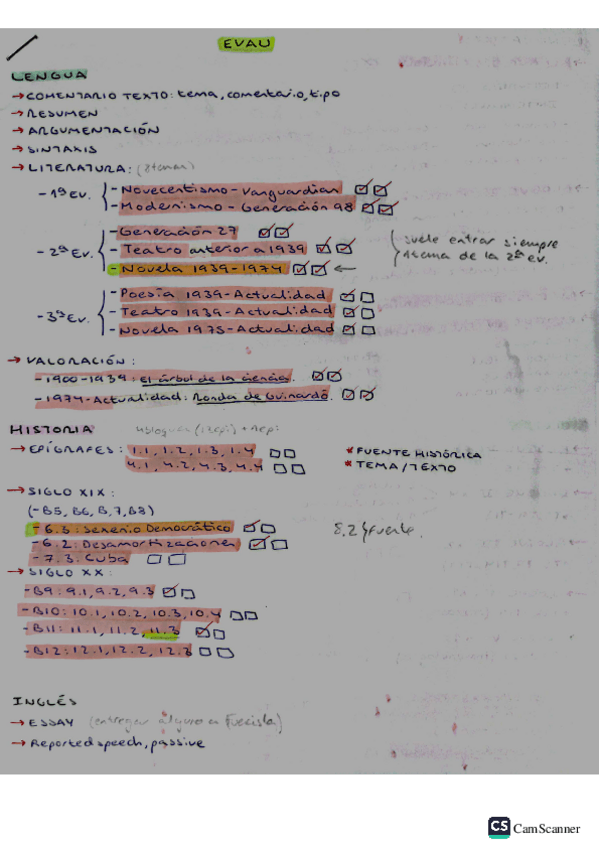 EVAU
LENGUA
→ COMENTARIO TEXTO: tema, comentario, tipo
→ RESUMEN
→ ARGUMENTACIÓN
→ SINTAXIS
→ LITERATURA: (8 temas)
- 1ª Ev.
- Novecentismo - Vanguardias
- Modernismo - Generación 98
- 2ª Ev.
- Generación 27
- Teatro anterior a 1939
- Novela 1939-1974 ←
suele entrar siempre
1 tema de la 2ª ev.
- 3ª Ev.
- Poesía 1939-Actualidad
- Teatro 1939-Actualidad
- Novela 1975-Actualidad
→ VALORACIÓN:
- 1900-1939: El árbol de la ciencia.
- 1974-Actualidad: Ronda de Guinardó.
HISTORIA
→ EPÍGRAFES: 1.1, 1.2, 1.3, 1.4
4.1, 4.2, 4.3, 4.4
* FUENTE HISTÓRICA
* TEMA/TEXTO
→ SIGLO XIX:
(- B5, B6, B,7, B8)
- 6.3: Sexenio Democrático
- 6.2: Desamortizaciones
- 7.3: Cuba
8.2 } fuente.
→ SIGLO XX:
- B9: 9.1, 9.2, 9.3
- B10: 10.1, 10.2, 10.3, 10.4
- B11: 11.1, 11.2, 11.3
- B12: 12.1, 12.2, 12.3
INGLÉS
→ ESSAY (entregar alguno a Fuecisla)
→ Reported speech, passive
CS CamScanner